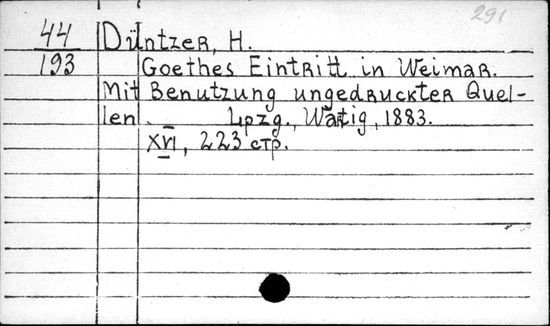 291
44 Düntzer, H.
193 Goethes Eintritt in Weimar.
Mit Benutzung ungedruckter Quel-
len. Lpzg., Wartig, 1883.
XVI, 223 стр.